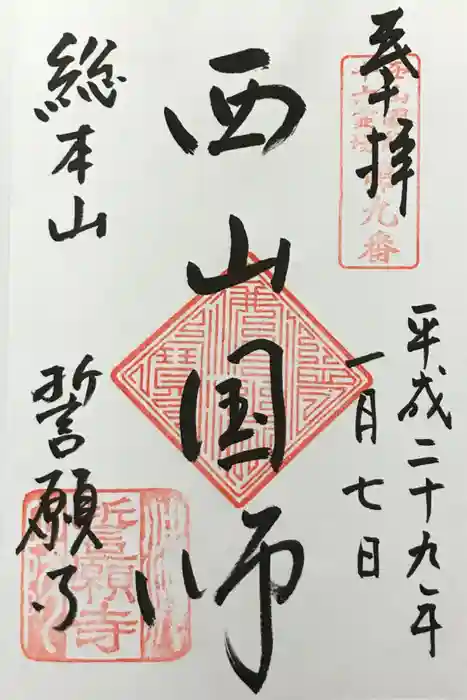 奉拝
平成二十九年
一月七日
西山国師
総本山
誓願寺
第九番
誓願寺